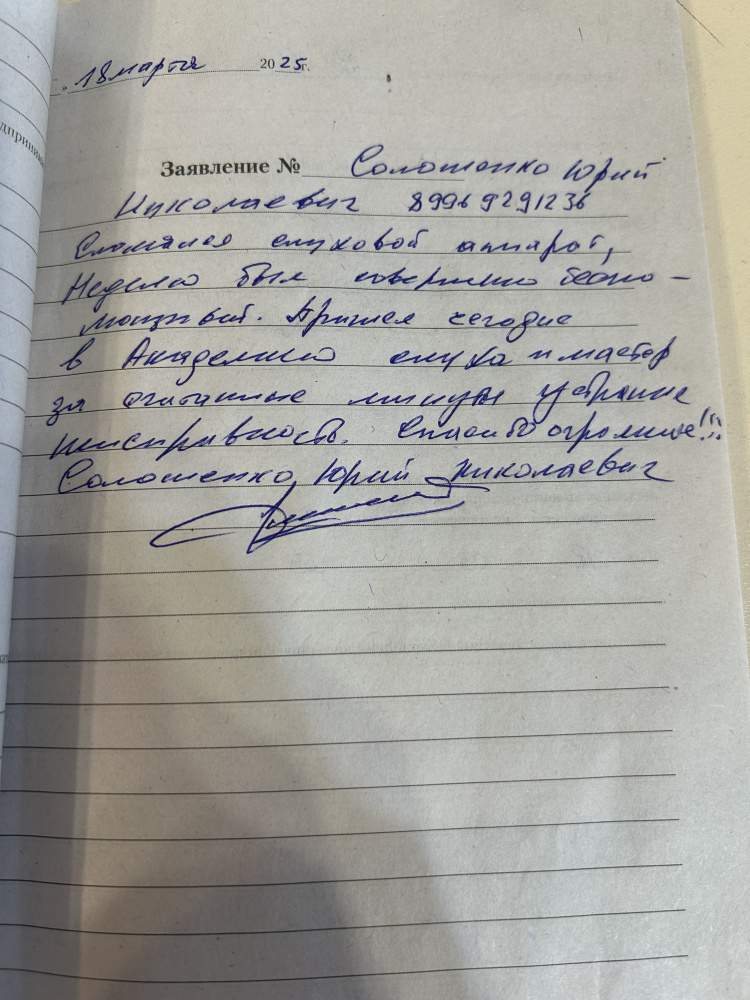 18 марта 2025г.
Заявление № Солошенко Юрий
Николаевич 89969291236
Сломался слуховой аппарат,
Неделю был совершенно беспо-
мощный. Пришел сегодня
в Академию слуха и мастер
за считанные минуты устранил
неисправность. Спасибо огромное!!!
Солошенко Юрий Николаевич